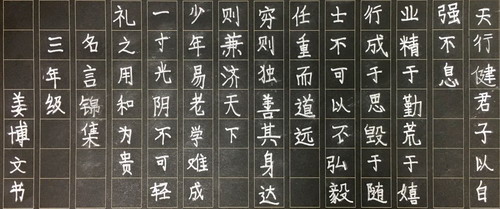 天行健君子以白
强不息
业精于勤荒于嬉
行成于思毁于随
士不可以不弘毅
任重而道远
穷则独善其身达
则兼济天下
少年易老学难成
一寸光阴不可轻
礼之用和为贵
名言锦集
三年级
姜博文书